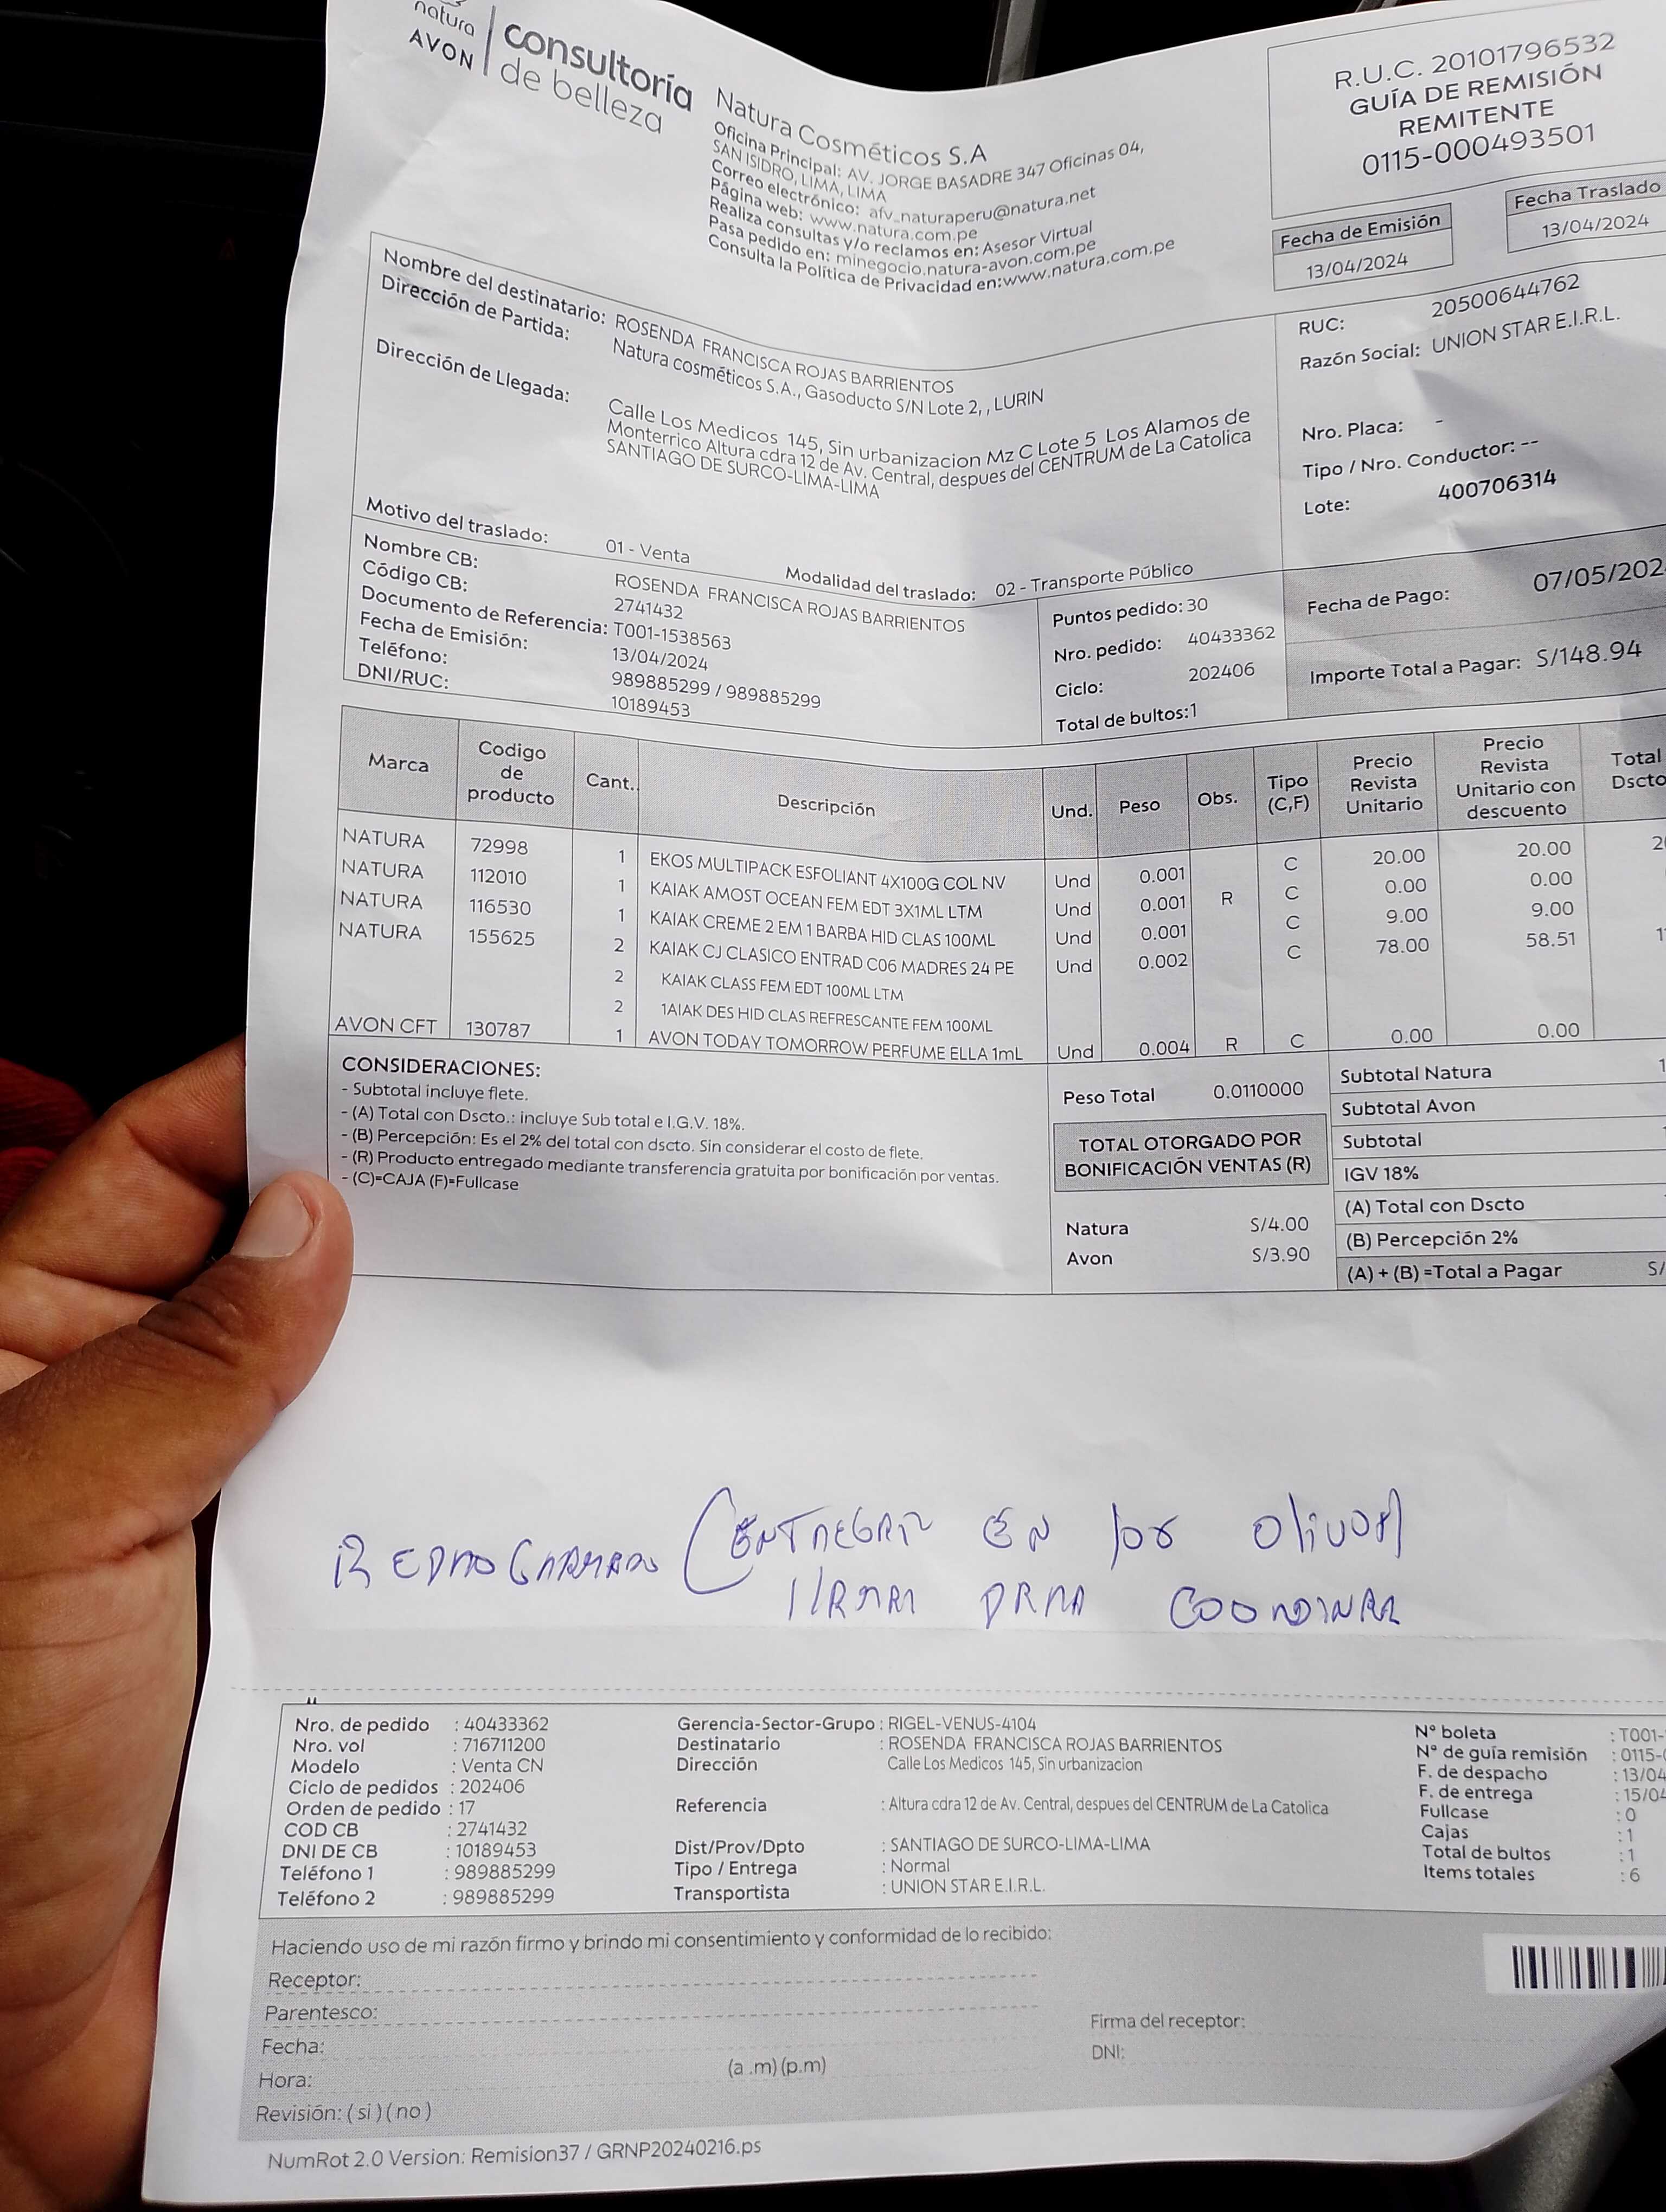 natura
AVON
consultoría
de belleza
Natura Cosméticos S.A
Oficina Principal: AV. JORGE BASADRE 347 Oficinas 04,
SAN ISIDRO, LIMA, LIMA
Correo electrónico: afv_naturaperu@natura.net
Página web: www.natura.com.pe
Realiza consultas y/o reclamos en: Asesor Virtual
Pasa pedido en: minegocio.natura-avon.com.pe
Consulta la Política de Privacidad en:www.natura.com.pe
R.U.C. 20101796532
GUÍA DE REMISIÓN
REMITENTE
0115-000493501
Fecha de Emisión
13/04/2024
Fecha Traslado
13/04/2024
Nombre del destinatario: ROSENDA FRANCISCA ROJAS BARRIENTOS
Dirección de Partida: Natura cosméticos S.A., Gasoducto S/N Lote 2, , LURIN
Dirección de Llegada: Calle Los Medicos 145, Sin urbanizacion Mz C Lote 5 Los Alamos de
Monterrico Altura cdra 12 de Av. Central, despues del CENTRUM de La Catolica
SANTIAGO DE SURCO-LIMA-LIMA
Motivo del traslado: 01 - Venta Modalidad del traslado: 02 - Transporte Público
RUC: 20500644762
Razón Social: UNION STAR E.I.R.L.
Nro. Placa: -
Tipo / Nro. Conductor: --
Lote: 400706314
Nombre CB: ROSENDA FRANCISCA ROJAS BARRIENTOS
Código CB: 2741432
Documento de Referencia: T001-1538563
Fecha de Emisión: 13/04/2024
Teléfono: 989885299 / 989885299
DNI/RUC: 10189453
Puntos pedido: 30
Nro. pedido: 40433362
Ciclo: 202406
Total de bultos: 1
Fecha de Pago: 07/05/202
Importe Total a Pagar: S/148.94
Marca Codigo de producto Cant. Descripción Und. Peso Obs. Tipo (C,F) Precio Revista Unitario Precio Revista Unitario con descuento Total Dscto
NATURA 72998 1 EKOS MULTIPACK ESFOLIANT 4X100G COL NV Und 0.001 C 20.00 20.00
NATURA 112010 1 KAIAK AMOST OCEAN FEM EDT 3X1ML LTM Und 0.001 R C 0.00 0.00
NATURA 116530 1 KAIAK CREME 2 EM 1 BARBA HID CLAS 100ML Und 0.001 C 9.00 9.00
NATURA 155625 2 KAIAK CJ CLASICO ENTRAD C06 MADRES 24 PE Und 0.002 C 78.00 58.51
2 KAIAK CLASS FEM EDT 100ML LTM
2 1AIAK DES HID CLAS REFRESCANTE FEM 100ML
AVON CFT 130787 1 AVON TODAY TOMORROW PERFUME ELLA 1mL Und 0.004 R C 0.00 0.00
CONSIDERACIONES:
- Subtotal incluye flete.
- (A) Total con Dscto.: incluye Sub total e I.G.V. 18%.
- (B) Percepción: Es el 2% del total con dscto. Sin considerar el costo de flete.
- (R) Producto entregado mediante transferencia gratuita por bonificación por ventas.
- (C)=CAJA (F)=Fullcase
Peso Total 0.0110000
TOTAL OTORGADO POR
BONIFICACIÓN VENTAS (R)
Natura S/4.00
Avon S/3.90
Subtotal Natura
Subtotal Avon
Subtotal
IGV 18%
(A) Total con Dscto
(B) Percepción 2%
(A) + (B) =Total a Pagar S/
REPROGRAMADO (ENTREGAR EN los Olivos)
llAMAR PARA COORDINAR
Nro. de pedido : 40433362
Nro. vol : 716711200
Modelo : Venta CN
Ciclo de pedidos : 202406
Orden de pedido : 17
COD CB : 2741432
DNI DE CB : 10189453
Teléfono 1 : 989885299
Teléfono 2 : 989885299
Gerencia-Sector-Grupo : RIGEL-VENUS-4104
Destinatario : ROSENDA FRANCISCA ROJAS BARRIENTOS
Dirección Calle Los Medicos 145, Sin urbanizacion
Referencia : Altura cdra 12 de Av. Central, despues del CENTRUM de La Catolica
Dist/Prov/Dpto : SANTIAGO DE SURCO-LIMA-LIMA
Tipo / Entrega : Normal
Transportista : UNION STAR E.I.R.L.
N° boleta : T001-
N° de guía remisión : 0115-
F. de despacho : 13/04
F. de entrega : 15/04
Fullcase : 0
Cajas : 1
Total de bultos : 1
Items totales : 6
Haciendo uso de mi razón firmo y brindo mi consentimiento y conformidad de lo recibido:
Receptor:
Parentesco:
Fecha:
Hora: (a .m) (p.m)
Revisión: ( si ) ( no )
Firma del receptor:
DNI:
NumRot 2.0 Version: Remision37 / GRNP20240216.ps